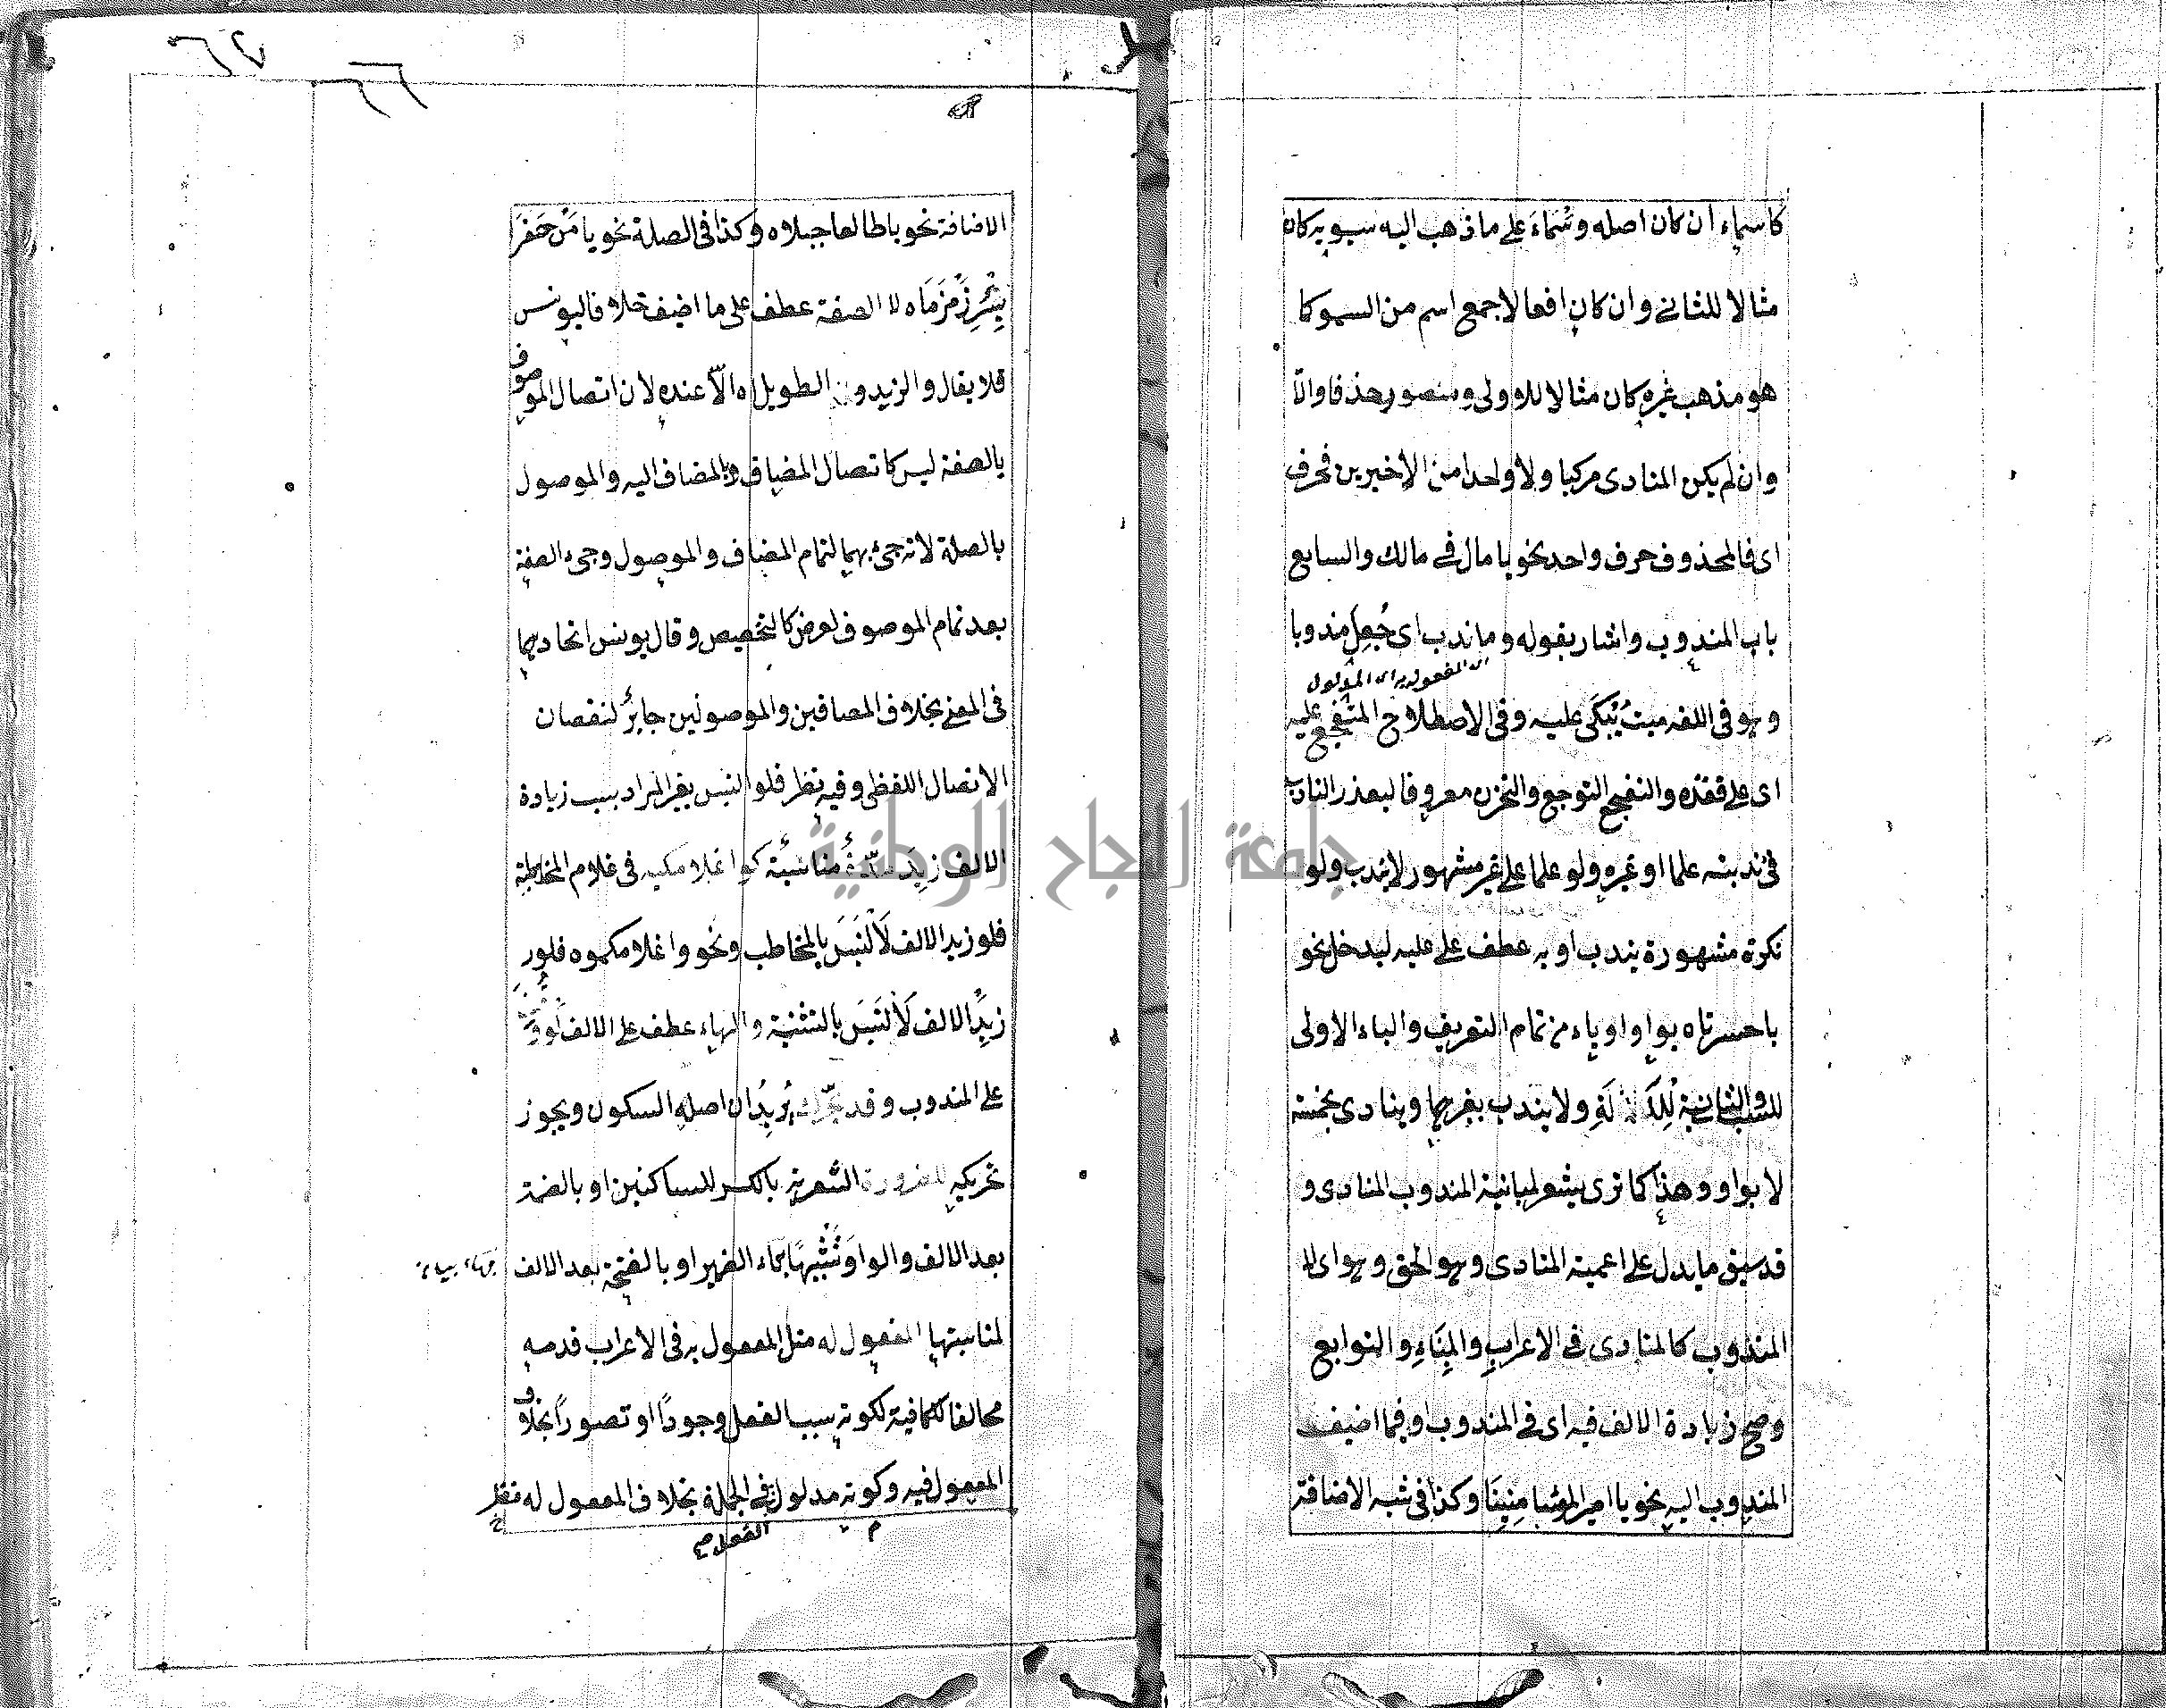 كاسماء ان كان اصله وسماء على ما ذهب اليه سيبويه كان
مثالا للثاني وان كان افعالا جمع اسم من السمو كما
هو مذهب غيره كان مثالا للاولى ومنصور هذفا والا
وان لم يكن المنادى مركبا ولا واحدا من الاخيرين فحرف
اى فالمحذوف حرف واحد نحو يا مال في مالك والسابع
باب المندوب واشار بقوله وما ندب اى جُعِل مندوبا
وهو في اللغه ميتٌ يُبكَى عليه وفي الاصطلاح المتفجع عليه
اى على فقده والتفجع التوجع والتحزن معروفا ليعذر النادب
في ندبته علما او غيره ولو علما على غير مشهور لا يندب ولو
نكرة مشهورة يندب او به عطف على عليه ليدخل نحو
يا حسرتاه بوا او ياء من تمام التعريف والباء الاولى
للسببية والثانية للآلة ولا يندب بغيرهما وينادى بخمسة
لا بوا و وهذا كما ترى يشعر لمباينة المندوب المنادى و
قد سبق ما يدل على اعمية المنادى وهو الحق وهو اى
المندوب كالمنادى في الاعراب والبناء والتوابع
وصح زيادة الالف فيه اى في المندوب او فيما اضيف
المندوب اليه نحو يا امير المؤمنينا وكذا في شبه الاضافة
الاضافة نحو يا طالعا جبلاه وكذا في الصلة نحو يا مَن حَفَرَ
بئر زمزماه لا الصفة عطف على ما اضيف خلافا ليونس
فلا يقال والزيدون الطويلاه الا عنده لان اتصال الموصوف
بالصفة ليس كاتصال المضاف بالمضاف اليه والموصول
بالصلة لانه جئ بهما لتمام المضاف والموصول وجئ الصفة
بعد تمام الموصوف لغرض كالتخصيص وقال يونس اتحادهما
في المعنى بخلاف المضافين والموصولين جابرٌ لنقصان
الاتصال اللفظى وفيه نظر فلو التبس بغير المراد بسبب زيادة
الالف زيد مدّةٌ مناسبة كوا غلامكيه في غلام المخاطبة
فلو زيد الالف لَالْتَبَسَ بالمخاطب ونحو وا غلامكموه فلو
زيد الالف لَالْتَبَسَ بالتثنية والهاء عطف على الالف
على المندوب وقد تحرّك يُريدُ ان اصله السكون ويجوز
تحريكه للضرورة الشعرية بالكسر للساكنين او بالضمة
بعد الالف والواو تشبيهًا بهاء الضمير او بالفتحة بعد الالف
لمناسبتها المفعول له مثل المفعول به في الاعراب قدمه
مخالفا للكافية لكونه سبب الفعل وجودًا او تصورًا بخلاف
المفعول فيه وكونه مدلول في الجملة بخلاف المفعول له
جامعة النجاح الوطنية